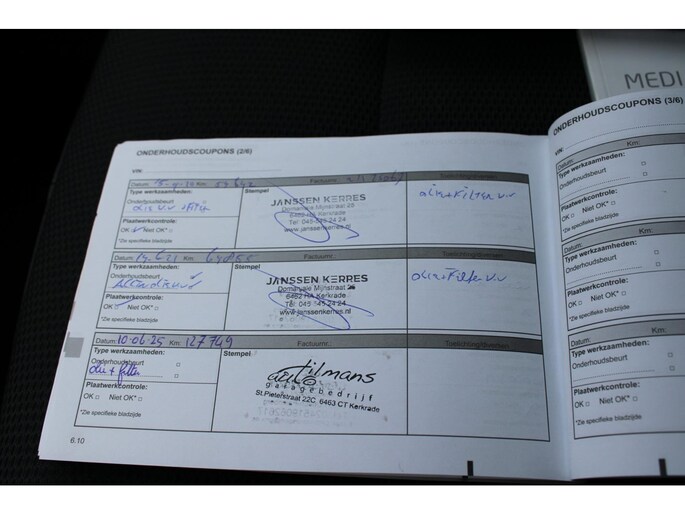 MEDI
ONDERHOUDSCOUPONS (2/6)
VIN:
Datum: Km: Factuurnr.:
Type werkzaamheden:
Onderhoudsbeurt
Stempel
JANSSEN KERRES
Domaniale Mijnstraat 25
6462 Kerkrade
Tel: 045-545 24 24
www.janssenkerres.nl
olie + FILTER V.V
Plaatwerkcontrole:
OK □ Niet OK* □
*Zie specifieke bladzijde
Datum: Km: Factuurnr.:
Type werkzaamheden:
Onderhoudsbeurt
Stempel
JANSSEN KERRES
Domaniale Mijnstraat 25
6462 HA Kerkrade
Tel: 045-545 24 24
www.janssenkerres.nl
olie + Filter V.V
Plaatwerkcontrole:
OK □ Niet OK* □
*Zie specifieke bladzijde
Datum: 10-06-25 Km: 127749 Factuurnr.:
Type werkzaamheden:
Onderhoudsbeurt
olie + filter
Stempel
auto tilmans
garagebedrijf
St.Pieterstraat 22C, 6463 CT Kerkrade
Plaatwerkcontrole:
OK □ Niet OK* □
*Zie specifieke bladzijde
6.10
ONDERHOUDSCOUPONS (3/6)
VIN:
Datum: Km:
Type werkzaamheden:
Onderhoudsbeurt □
Plaatwerkcontrole:
OK □ Niet OK* □
*Zie specifieke bladzijde
Datum: Km:
Type werkzaamheden:
Onderhoudsbeurt □
Plaatwerkcontrole:
OK □ Niet OK* □
*Zie specifieke bladzijde
Datum: Km:
Type werkzaamheden:
Onderhoudsbeurt □
Plaatwerkcontrole:
OK □ Niet OK* □
*Zie specifieke bladzijde